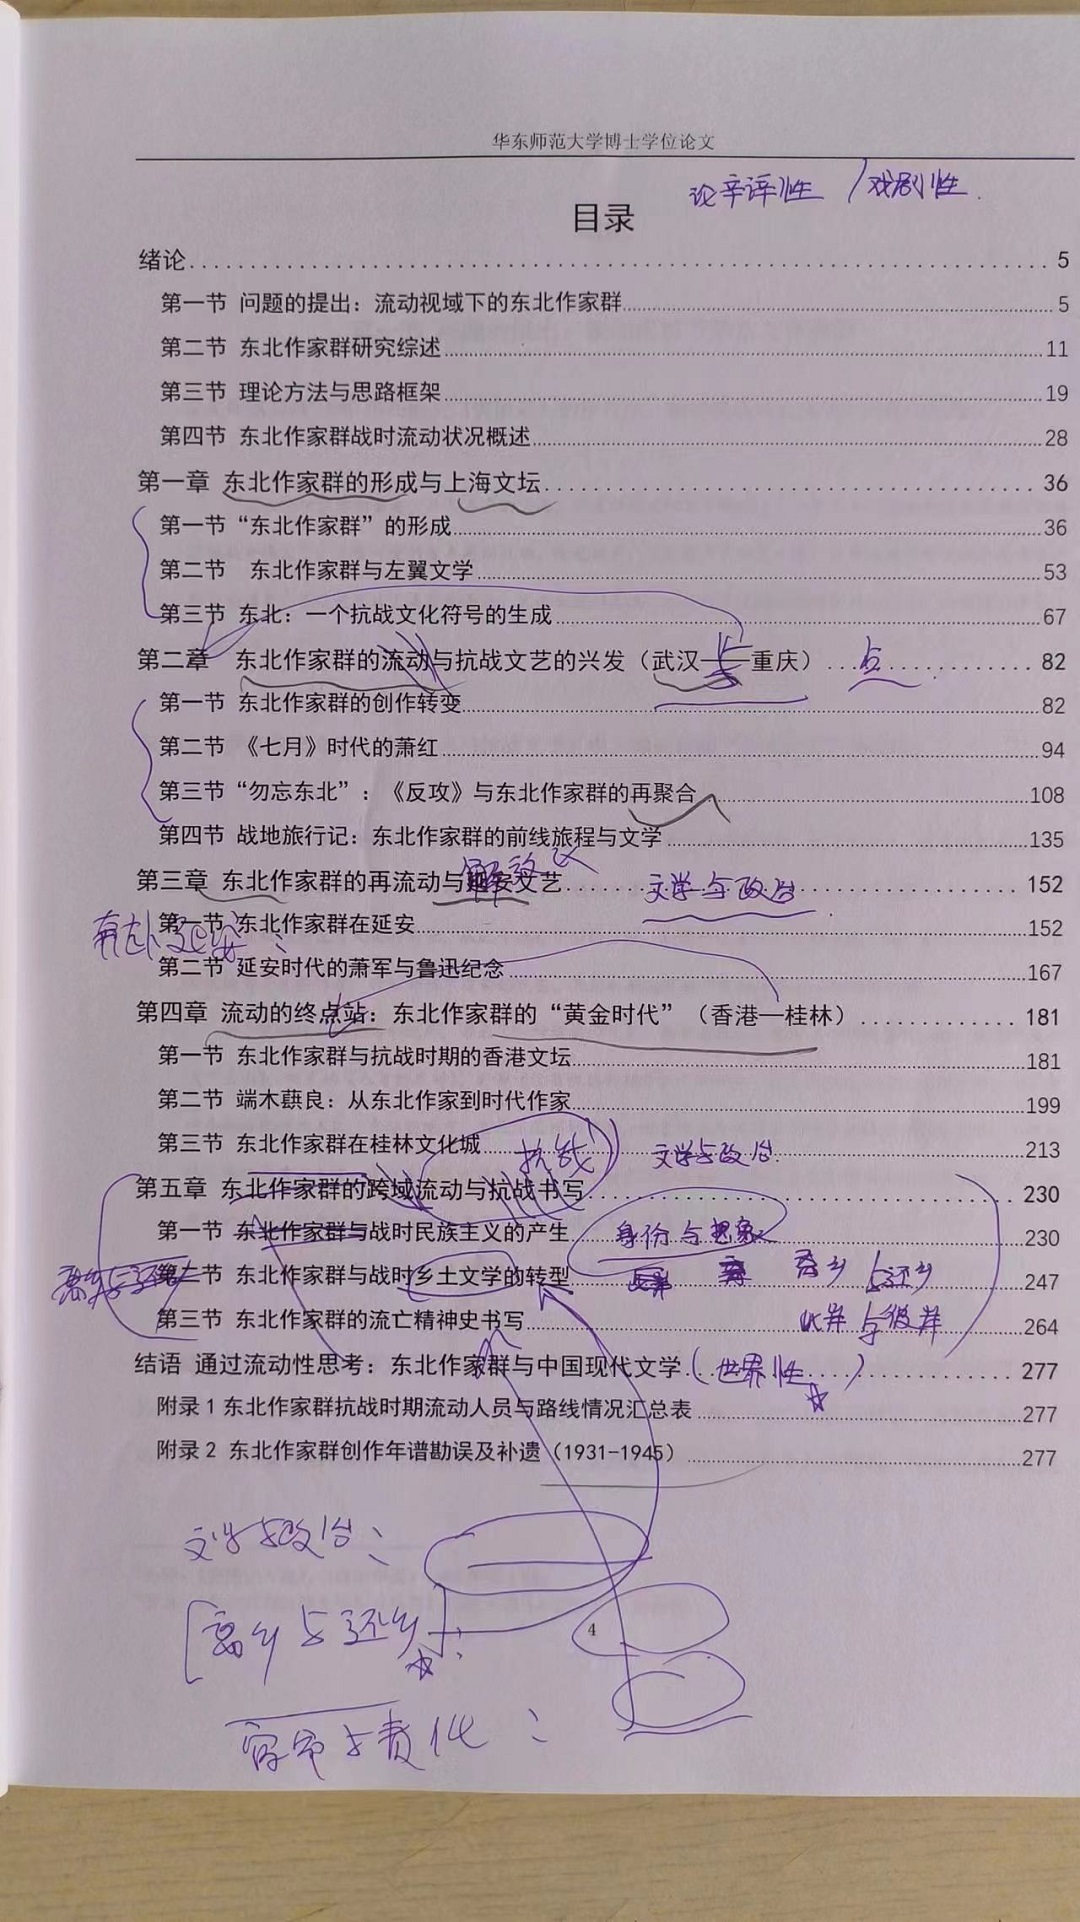 华东师范大学博士学位论文
论辛谆性 / 戏剧性
目录
绪论 5
第一节 问题的提出：流动视域下的东北作家群 5
第二节 东北作家群研究综述 11
第三节 理论方法与思路框架 19
第四节 东北作家群战时流动状况概述 28
第一章 东北作家群的形成与上海文坛 36
第一节“东北作家群”的形成 36
第二节 东北作家群与左翼文学 53
第三节 东北：一个抗战文化符号的生成 67
第二章 东北作家群的流动与抗战文艺的兴发（武汉——重庆） 82 点
第一节 东北作家群的创作转变 82
第二节 《七月》时代的萧红 94
第三节“勿忘东北”：《反攻》与东北作家群的再聚合 108
第四节 战地旅行记：东北作家群的前线旅程与文学 135
第三章 东北作家群的再流动与延安文艺 152 文学与政治
第一节 东北作家群在延安 152
第二节 延安时代的萧军与鲁迅纪念 167
第四章 流动的终点站：东北作家群的“黄金时代”（香港—桂林） 181
第一节 东北作家群与抗战时期的香港文坛 181
第二节 端木蕻良：从东北作家到时代作家 199
第三节 东北作家群在桂林文化城 213 抗战 文学与政治
第五章 东北作家群的跨域流动与抗战书写 230
第一节 东北作家群与战时民族主义的产生 230 身份与想象
第二节 东北作家群与战时乡土文学的转型 247 离乡与还乡
第三节 东北作家群的流亡精神史书写 264 此岸与彼岸
结语 通过流动性思考：东北作家群与中国现代文学 277 （世界性）
附录1 东北作家群抗战时期流动人员与路线情况汇总表 277
附录2 东北作家群创作年谱勘误及补遗（1931-1945） 277
文学与政治：
[离乡与还乡]：
4